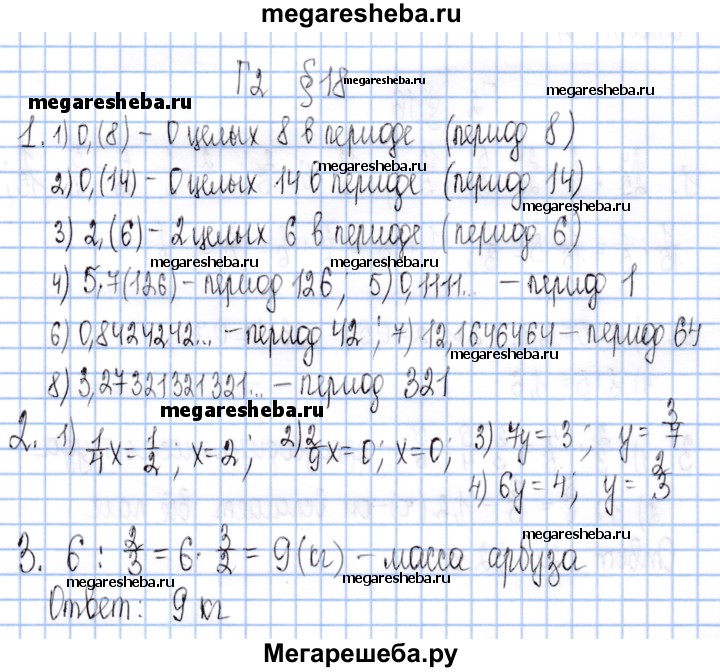 megaresheba.ru
Г2 § 18 megaresheba.ru
megaresheba.ru megaresheba.ru
1. 1) 0,(8) – 0 целых 8 в периоде (период 8)
megaresheba.ru
2) 0,(14) – 0 целых 14 в периоде (период 14)
megaresheba.ru
3) 2,(6) – 2 целых 6 в периоде (период 6)
megaresheba.ru megaresheba.ru
4) 5,7(126) – период 126; 5) 0,1111... – период 1
6) 0,8424242... – период 42; 7) 12,1646464 – период 64
megaresheba.ru
8) 3,27321321321... – период 321
megaresheba.ru
2. 1) 1/4 x = 1/2; x = 2; 2) 2/9 x = 0; x = 0; 3) 7y = 3; y = 3/7
4) 6y = 4; y = 2/3
megaresheba.ru
3. 6 : 2/3 = 6 · 3/2 = 9 (кг) – масса арбуза
megaresheba.ru megaresheba.ru
Ответ: 9 кг
Мегарешеба.ру